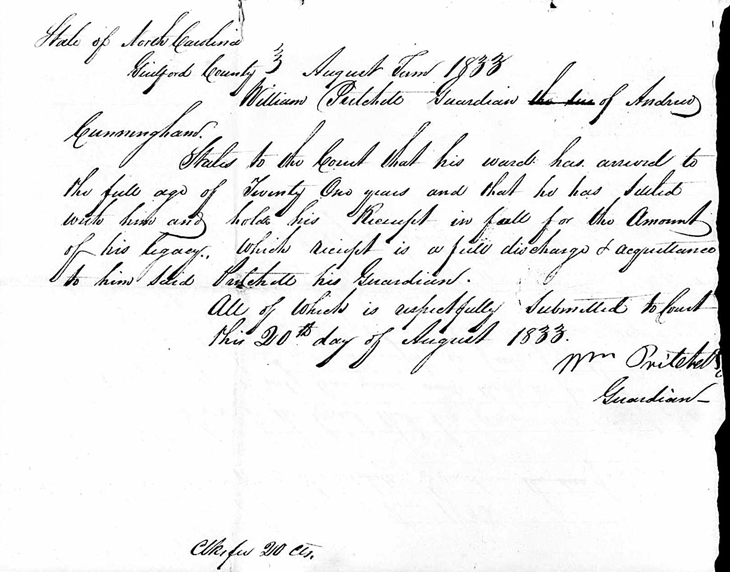 State of North Carolina
Guilford County } August Term 1833
William Pritchett Guardian the due of Andrew
Cunningham.
States to the Court that his ward has arrived to
the full age of Twenty One years and that he has Setled
with him and holds his Receipt in full for the Amount
of his legacy, which reciept is a full discharge & acquittance
to him said Pritchett his Guardian.
All of which is respectfully Submitted to Court
this 20th day of August 1833.
Wm Pritchett
Guardian
Clks fee 20 cts.